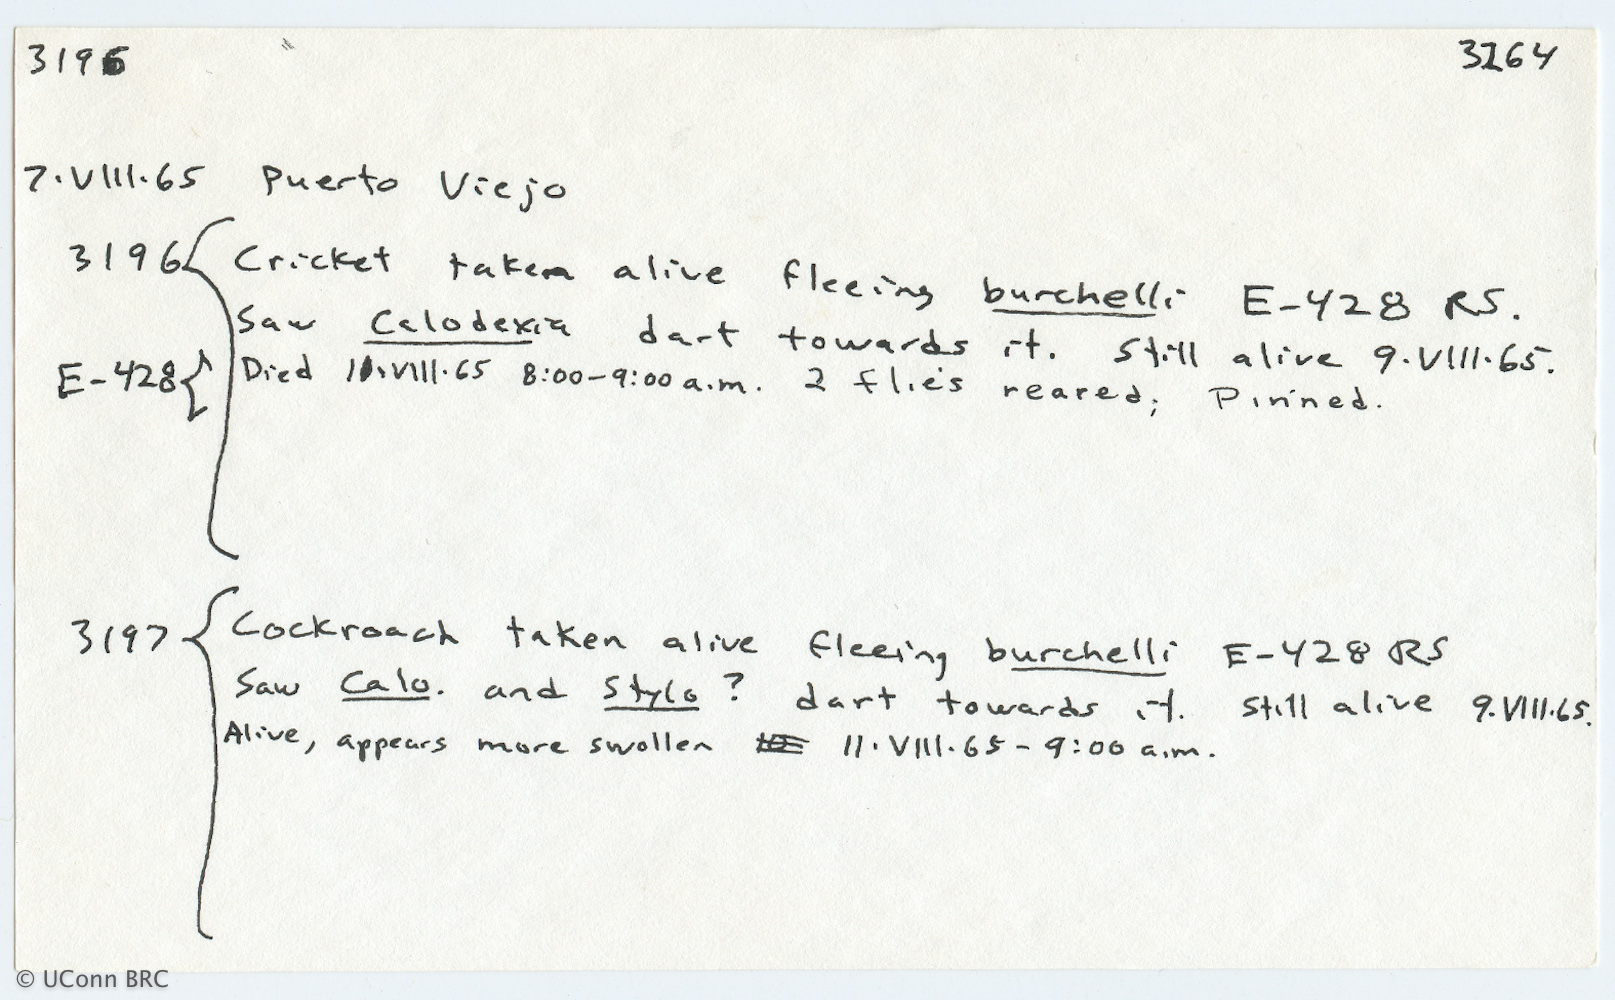 3196 3264
7.VIII.65 Puerto Viejo
3196 { Cricket taken alive fleeing burchelli E-428 RS.
Saw Calodexia dart towards it. Still alive 9.VIII.65.
E-428 { Died 11.VIII.65 8:00-9:00 a.m. 2 flies reared; Pinned.
3197 { Cockroach taken alive fleeing burchelli E-428 RS
Saw Calo. and Stylo? dart towards it. Still alive 9.VIII.65.
Alive, appears more swollen 11.VIII.65 - 9:00 a.m.
© UConn BRC